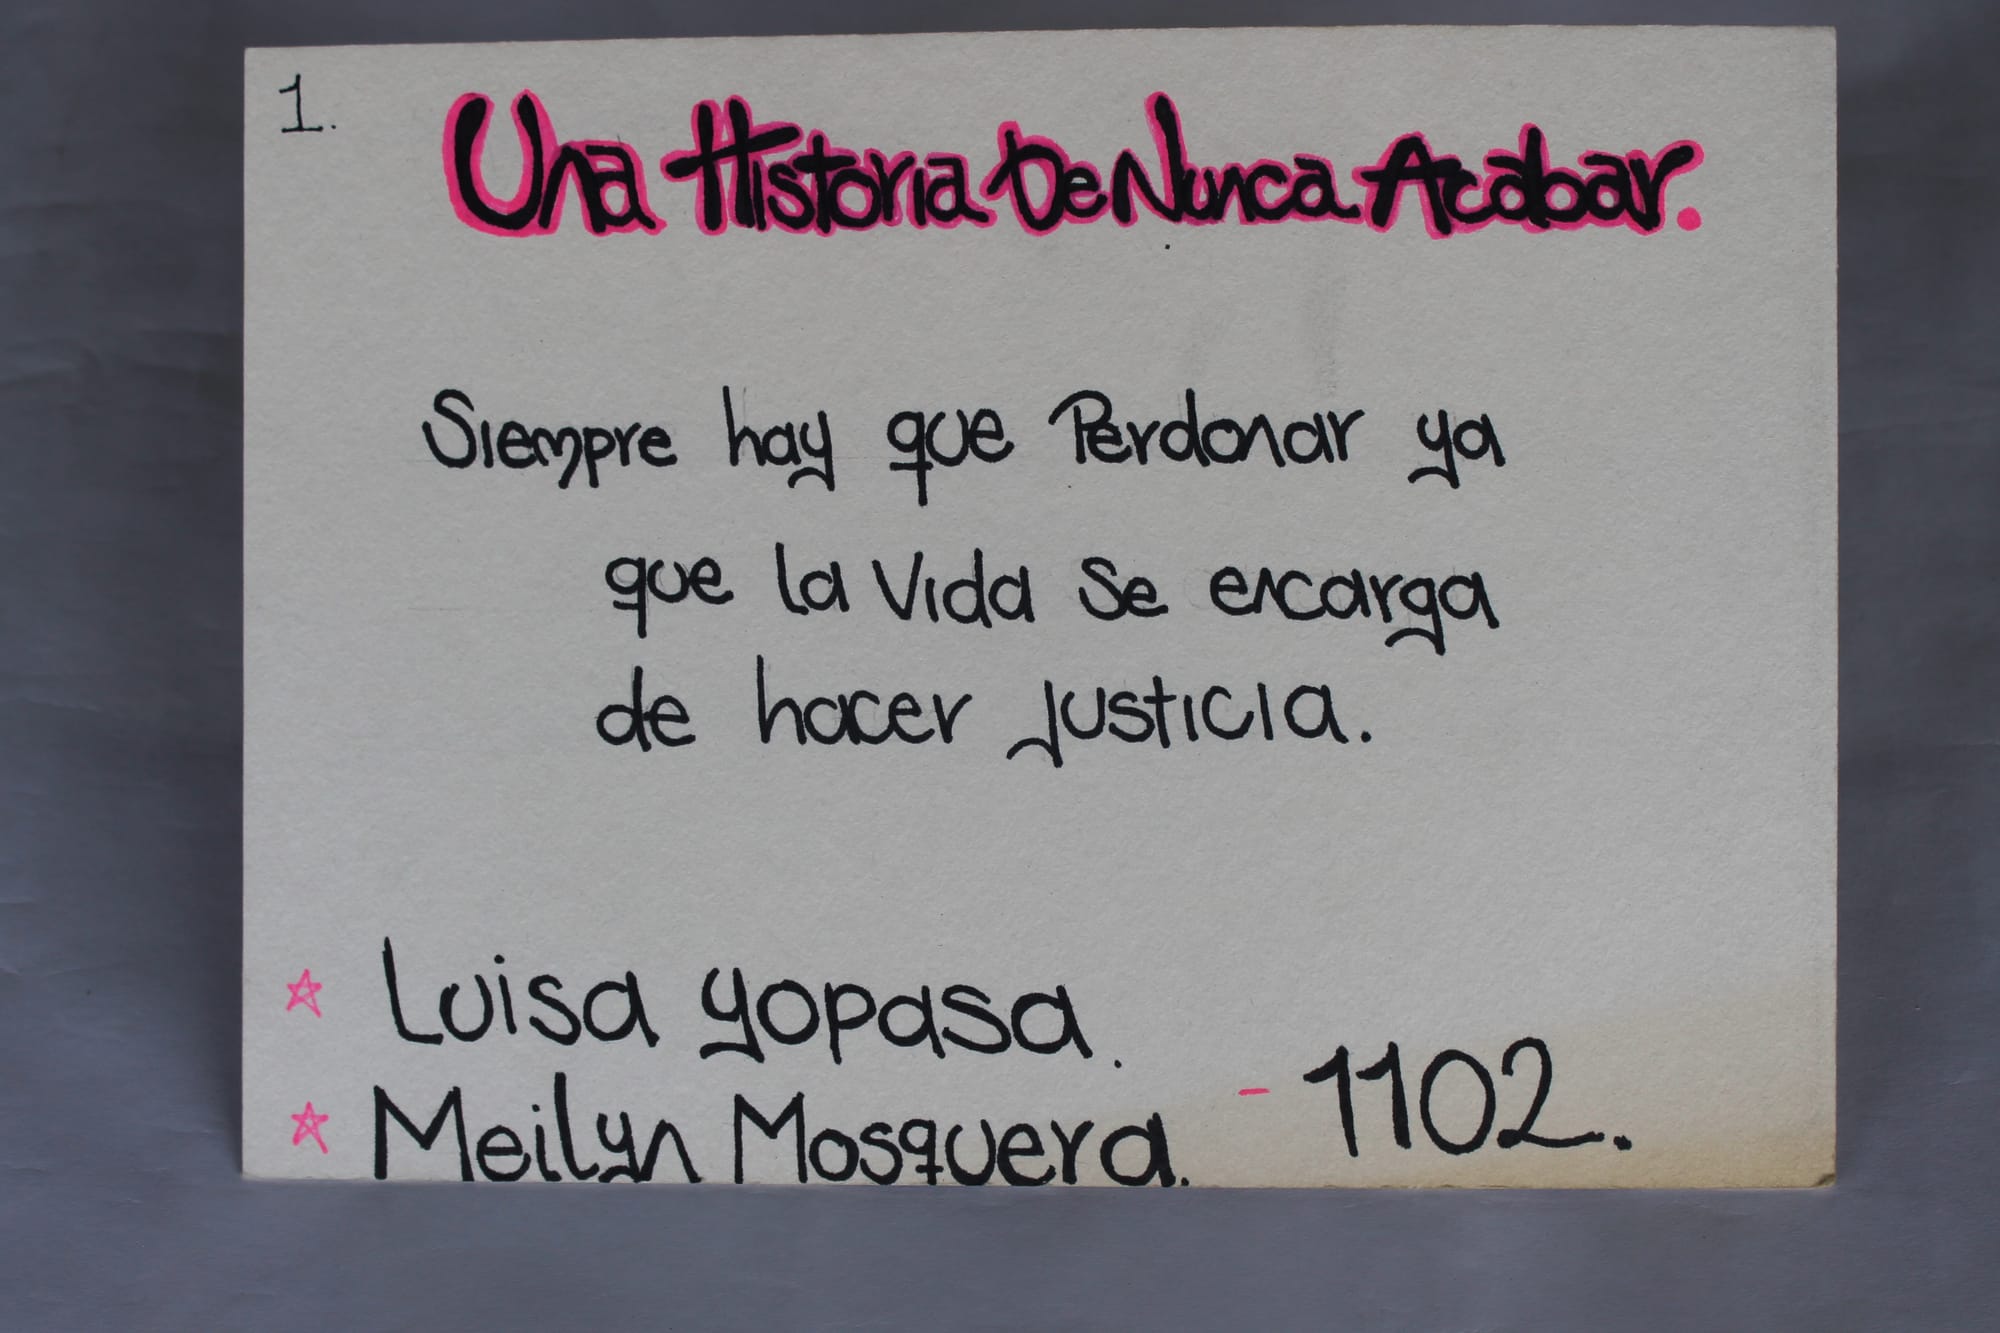 1.
Una Historia De Nunca Acabar.
Siempre hay que Perdonar ya
que la Vida Se encarga
de hacer justicia.
Luisa yopasa.
Meilyn Mosquera. - 1102.